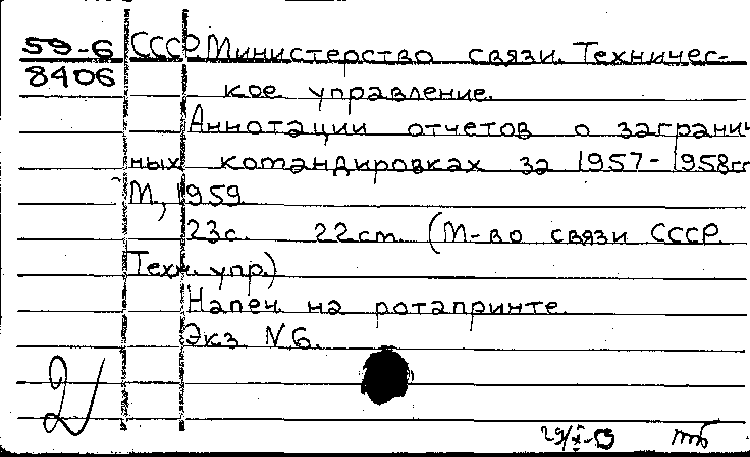 59-6 СССР Министерство связи. Техничес-
8406 кое управление.
Аннотации отчетов о загранич
ных командировках за 1957-1958гг
М, 1959.
23с. 22см. (М-во связи СССР.
Техн. упр.)
Напеч. на ротапринте.
Экз. N 6.
2
29/X-59